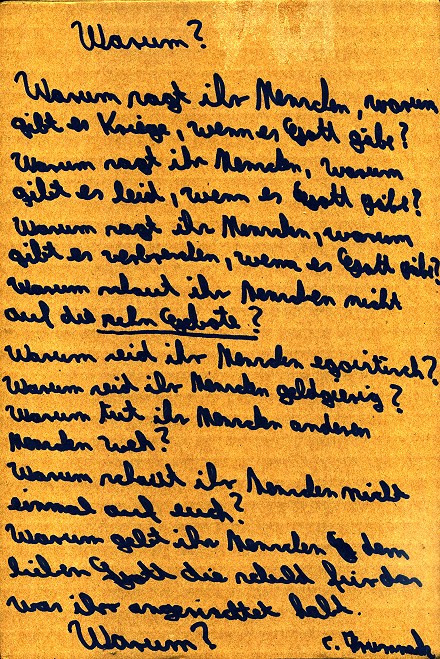 Warum?
Warum sagt ihr Menschen, warum
gibt es Kriege, wenn es Gott gibt?
Warum sagt ihr Menschen, warum
gibt es leid, wenn es Gott gibt?
Warum sagt ihr Menschen, warum
gibt es verbrechen, wenn es Gott gibt?
Warum schaut ihr Menschen nicht
auf die zehn Gebote?
Warum seid ihr Menschen egoistisch?
Warum seid ihr Menschen geldgierig?
Warum tut ihr Menschen anderen
Menschen weh?
Warum schaut ihr Menschen nicht
einmal auf euch?
Warum gebt ihr Menschen dem
lieben Gott die schuld für das
was ihr angerichtet habt.
Warum?